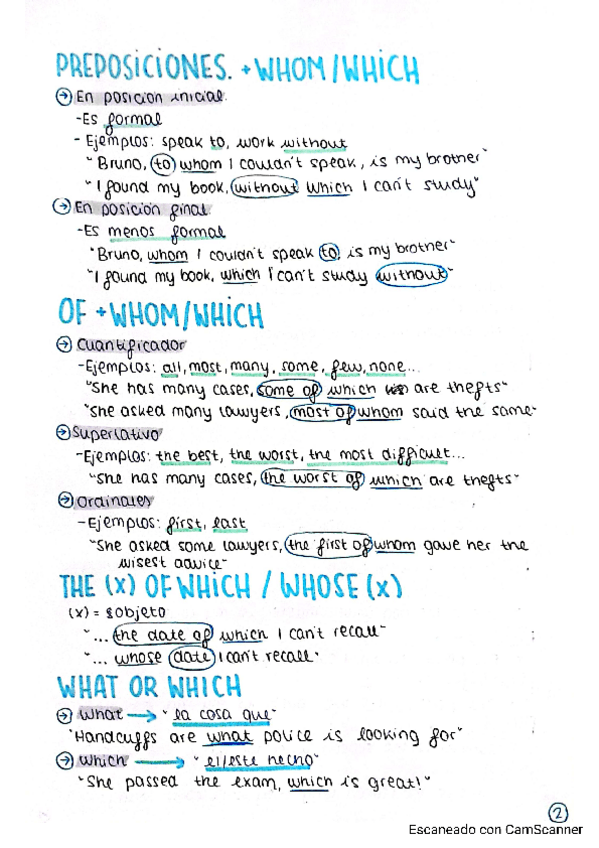 PREPOSICIONES. + WHOM / WHICH
→ En posicion inicial.
-Es formal
- Ejemplos: speak to, work without
"Bruno, to whom I couldn't speak, is my brother"
"I found my book, without which I can't study"
→ En posicion final
-Es menos formal
"Bruno, whom I couldn't speak to, is my brother"
"I found my book, which I can't study without"
OF + WHOM/WHICH
→ Cuantificador
-Ejemplos: all, most, many, some, few, none...
"She has many cases, some of which are thefts"
"She asked many lawyers, most of whom said the same"
→ Superlativo
-Ejemplos: the best, the worst, the most difficult...
"She has many cases, the worst of which are thefts"
→ Ordinales
-Ejemplos: first, last
"She asked some lawyers, the first of whom gave her the
wisest advice"
THE (X) OF WHICH / WHOSE (X)
(X) = objeto
"... the date of which I can't recall"
"... whose date I can't recall"
WHAT OR WHICH
→ What → "la cosa que"
"Handcuffs are what police is looking for"
→ Which → "el/este hecho"
"She passed the exam, which is great!"
2
Escaneado con CamScanner